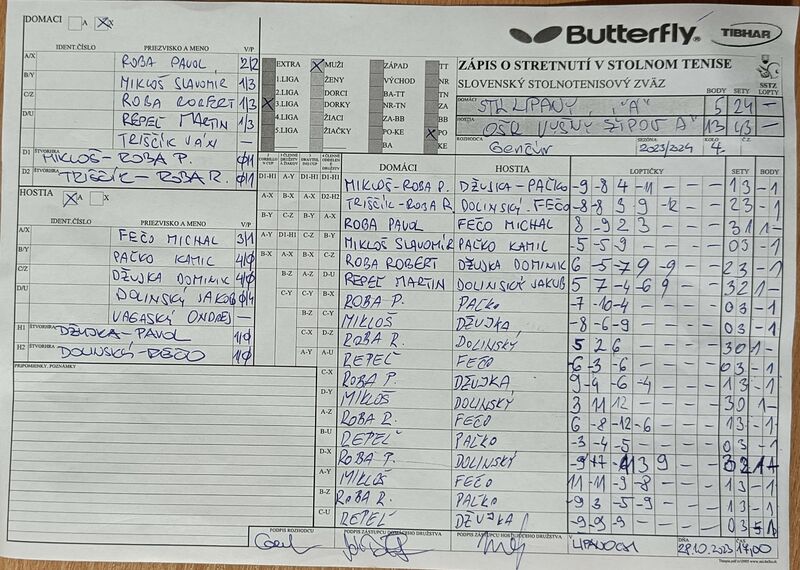 DOMÁCI A X
IDENT.ČÍSLO PRIEZVISKO A MENO V/P
A/X ROBA PAVOL 2/2
B/Y MIKLOŠ SLAVOMÍR 1/3
C/Z ROBA ROBERT 1/3
D/U REPEL MARTIN 1/3
TRIŠČÍK IVÁN —
D1 ŠTVORHRA MIKLOŠ-ROBA P. 0/1
D2 ŠTVORHRA TRIŠČÍK-ROBA R. 0/1
HOSTIA A X
IDENT.ČÍSLO PRIEZVISKO A MENO V/P
A/X FEČO MICHAL 3/1
B/Y PAČKO KAMIL 4/0
C/Z DŽUJKA DOMINIK 4/0
D/U DOLINSKÝ JAKUB 0/4
VAGASKÝ ONDREJ —
H1 ŠTVORHRA DŽUJKA-PAVOL 1/0
H2 ŠTVORHRA DOLINSKÝ-FEČO 1/0
PRIPOMIENKY, POZNÁMKY
Butterfly TIBHAR
EXTRA MUŽI ZÁPAD TT
1.LIGA ŽENY VÝCHOD NR
2.LIGA DORCI BA-TT TN
3.LIGA DORKY NR-TN ZA
4.LIGA ŽIACI ZA-BB BB
5.LIGA ŽIAČKY PO-KE PO
BA KE
ZÁPIS O STRETNUTÍ V STOLNOM TENISE
SLOVENSKÝ STOLNOTENISOVÝ ZVÄZ SSTZ
BODY SETY LOPTY
DOMÁCI STK LIPANY "A" 5 24 —
HOSTIA OŠK VYŠNÝ ŽIPOV A" 13 43 —
ROZHODCA Genčúr SEZÓNA 2023/2024 KOLO 4. Č.Z.
DOMÁCI HOSTIA LOPTIČKY SETY BODY
D1-H1 A-Y D1-H1 D1-H1 MIKLOŠ-ROBA P. DŽUJKA-PAČKO -9 -8 4 -11 — 13 -1
TRIŠČÍK-ROBA R. DOLINSKÝ-FEČO -8 -8 3 9 -12 — 23 -1
ROBA PAVOL FEČO MICHAL 8 -9 2 3 — 31 1-
MIKLOŠ SLAVOMÍR PAČKO KAMIL -5 -5 -9 — — 03 -1
ROBA ROBERT DŽUJKA DOMINIK 6 -5 -7 9 -9 — 23 -1
REPEL MARTIN DOLINSKÝ JAKUB 5 7 -4 -6 9 — 32 1-
ROBA P. PAČKO -7 -10 -4 — — 03 -1
MIKLOŠ DŽUJKA -8 -6 -9 — — 03 -1
ROBA R. DOLINSKÝ 5 2 6 — — 30 1-
REPEL FEČO -6 -3 -6 — — 03 -1
C-X ROBA P. DŽUJKA 9 -4 -6 -4 — 13 -1
D-Y MIKLOŠ DOLINSKÝ 3 11 12 — — 30 1-
A-Z ROBA R. FEČO 6 -8 -12 -6 — 13 -1
B-U REPEL PAČKO -3 -4 -5 — — 03 -1
D-X ROBA P. DOLINSKÝ 9 — — 32 1-
A-Y MIKLOŠ FEČO 11 -11 -9 -8 — 13 -1
B-Z ROBA R. PAČKO -9 3 -5 -9 — 13 -1
C-U REPEL DŽUJKA -9 -9 -9 — — 03
PODPIS ROZHODCU PODPIS ZÁSTUPCU DOMÁCEHO DRUŽSTVA PODPIS ZÁSTUPCU HOSŤUJÚCEHO DRUŽSTVA V LIPANOCH DŇA 28.10.2023 ČAS 17,00